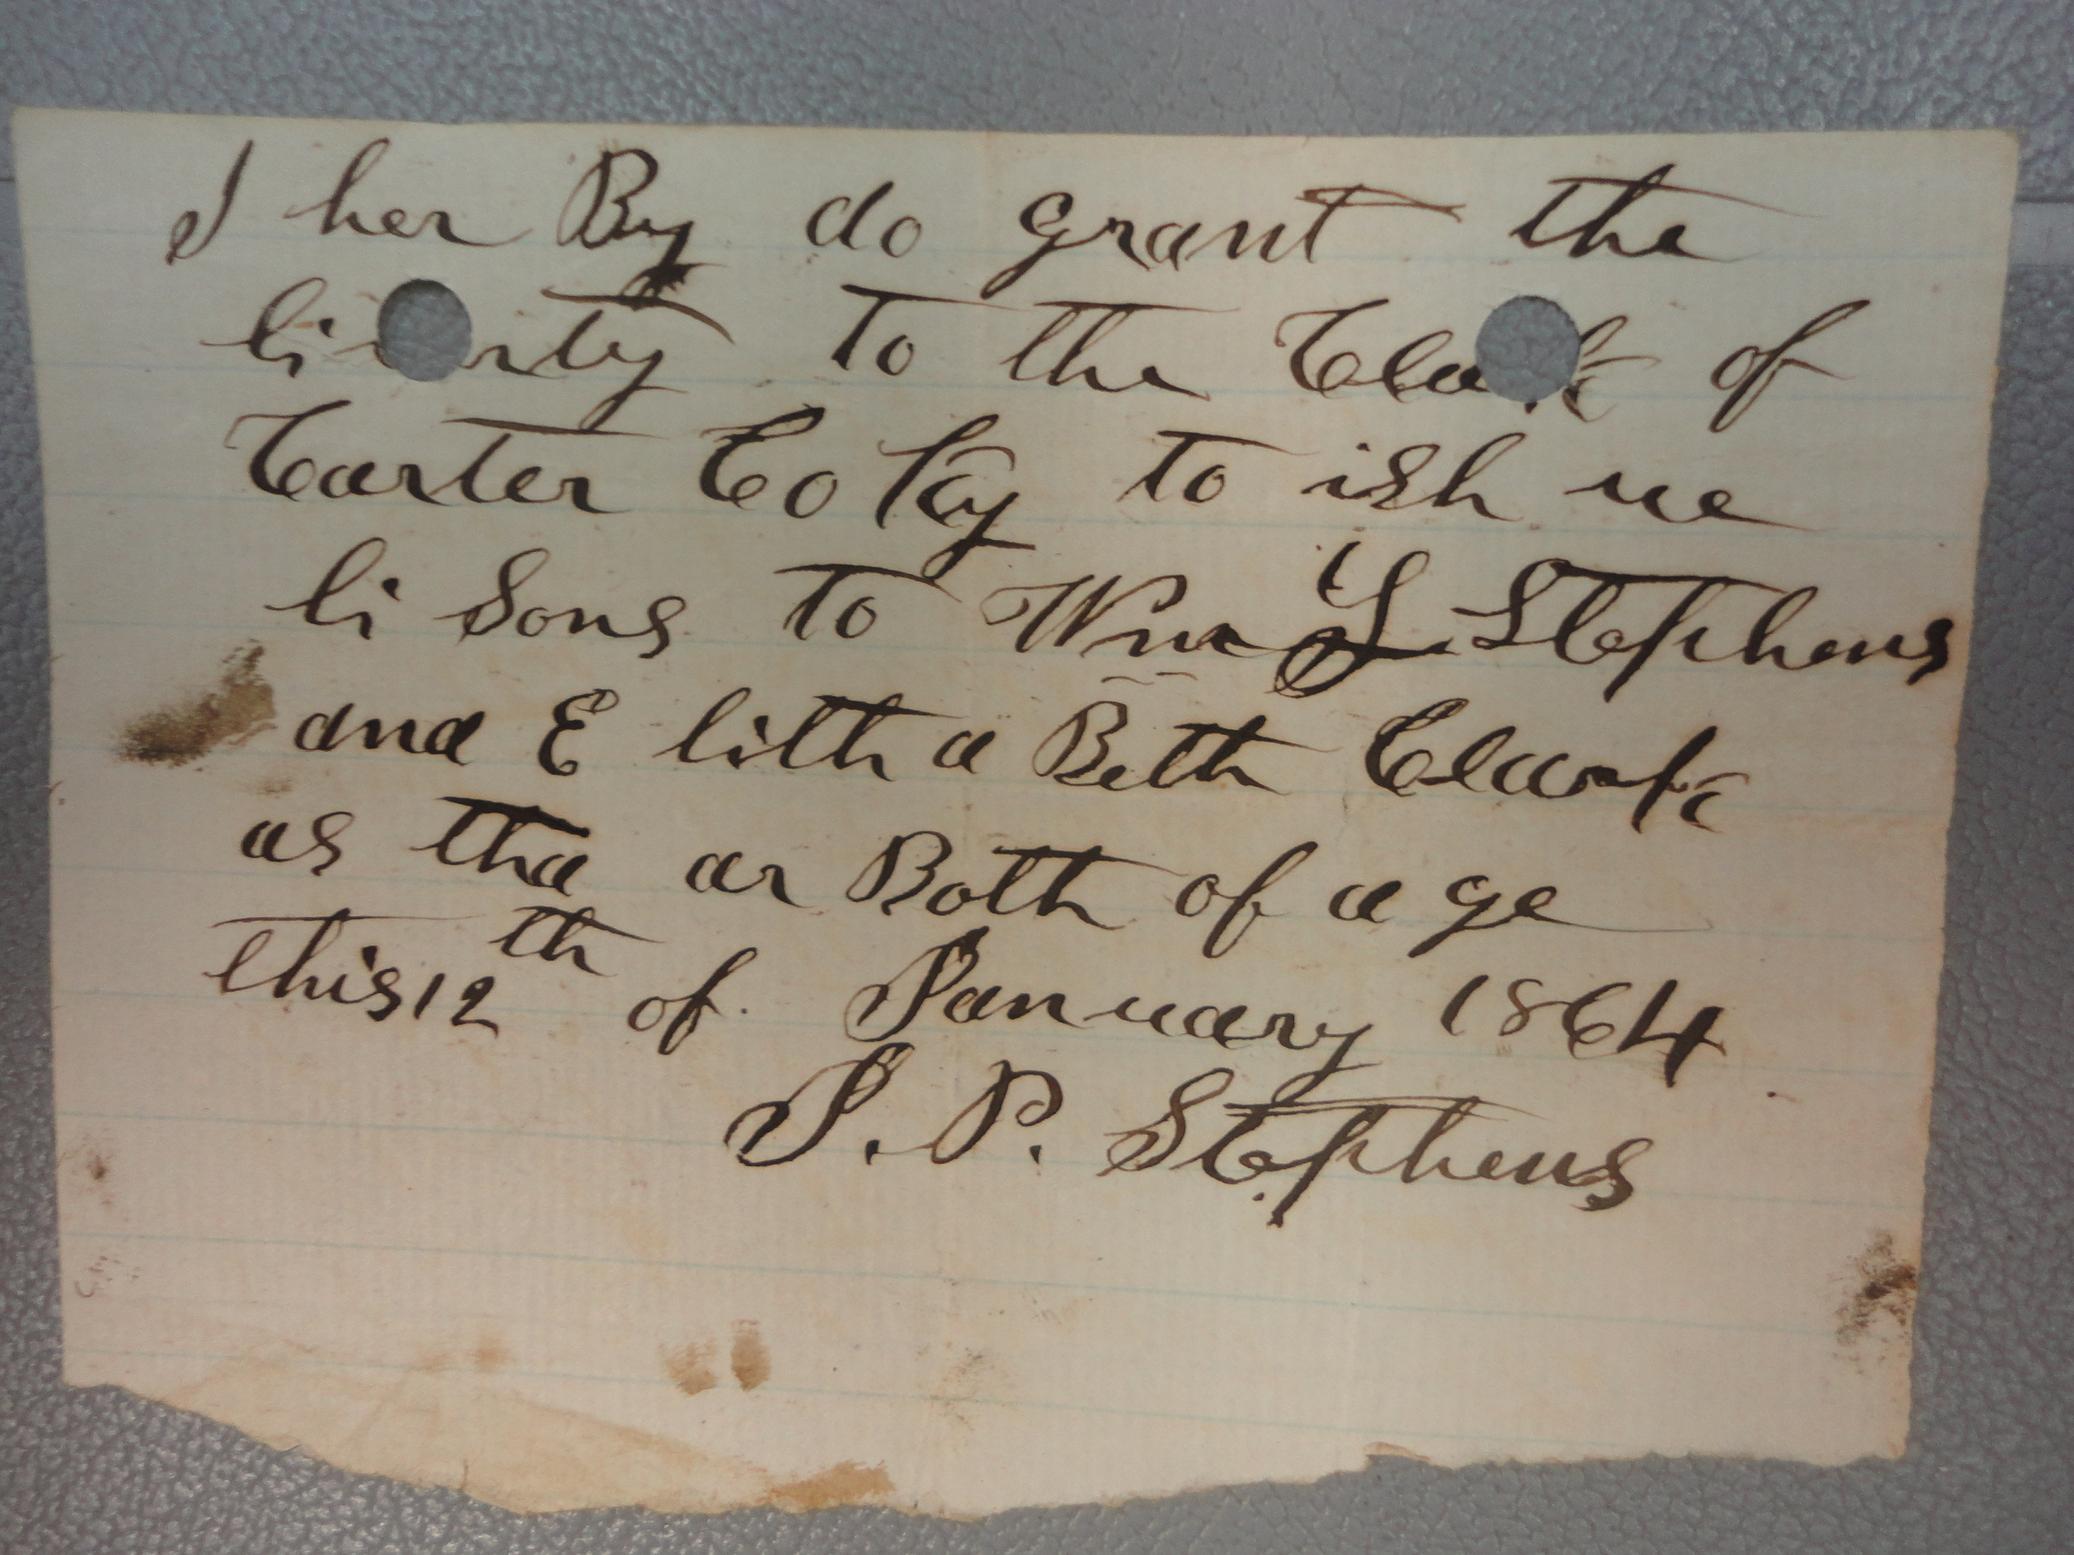 I her By do grant the
li rty to the Cla k of
Carter Co Ky to ish ue
li Sons to Wm Y. Stephens
and E lith a Beth Clark
as tha ar Both of a ge
this 12th of January 1864
J. P. Stephens